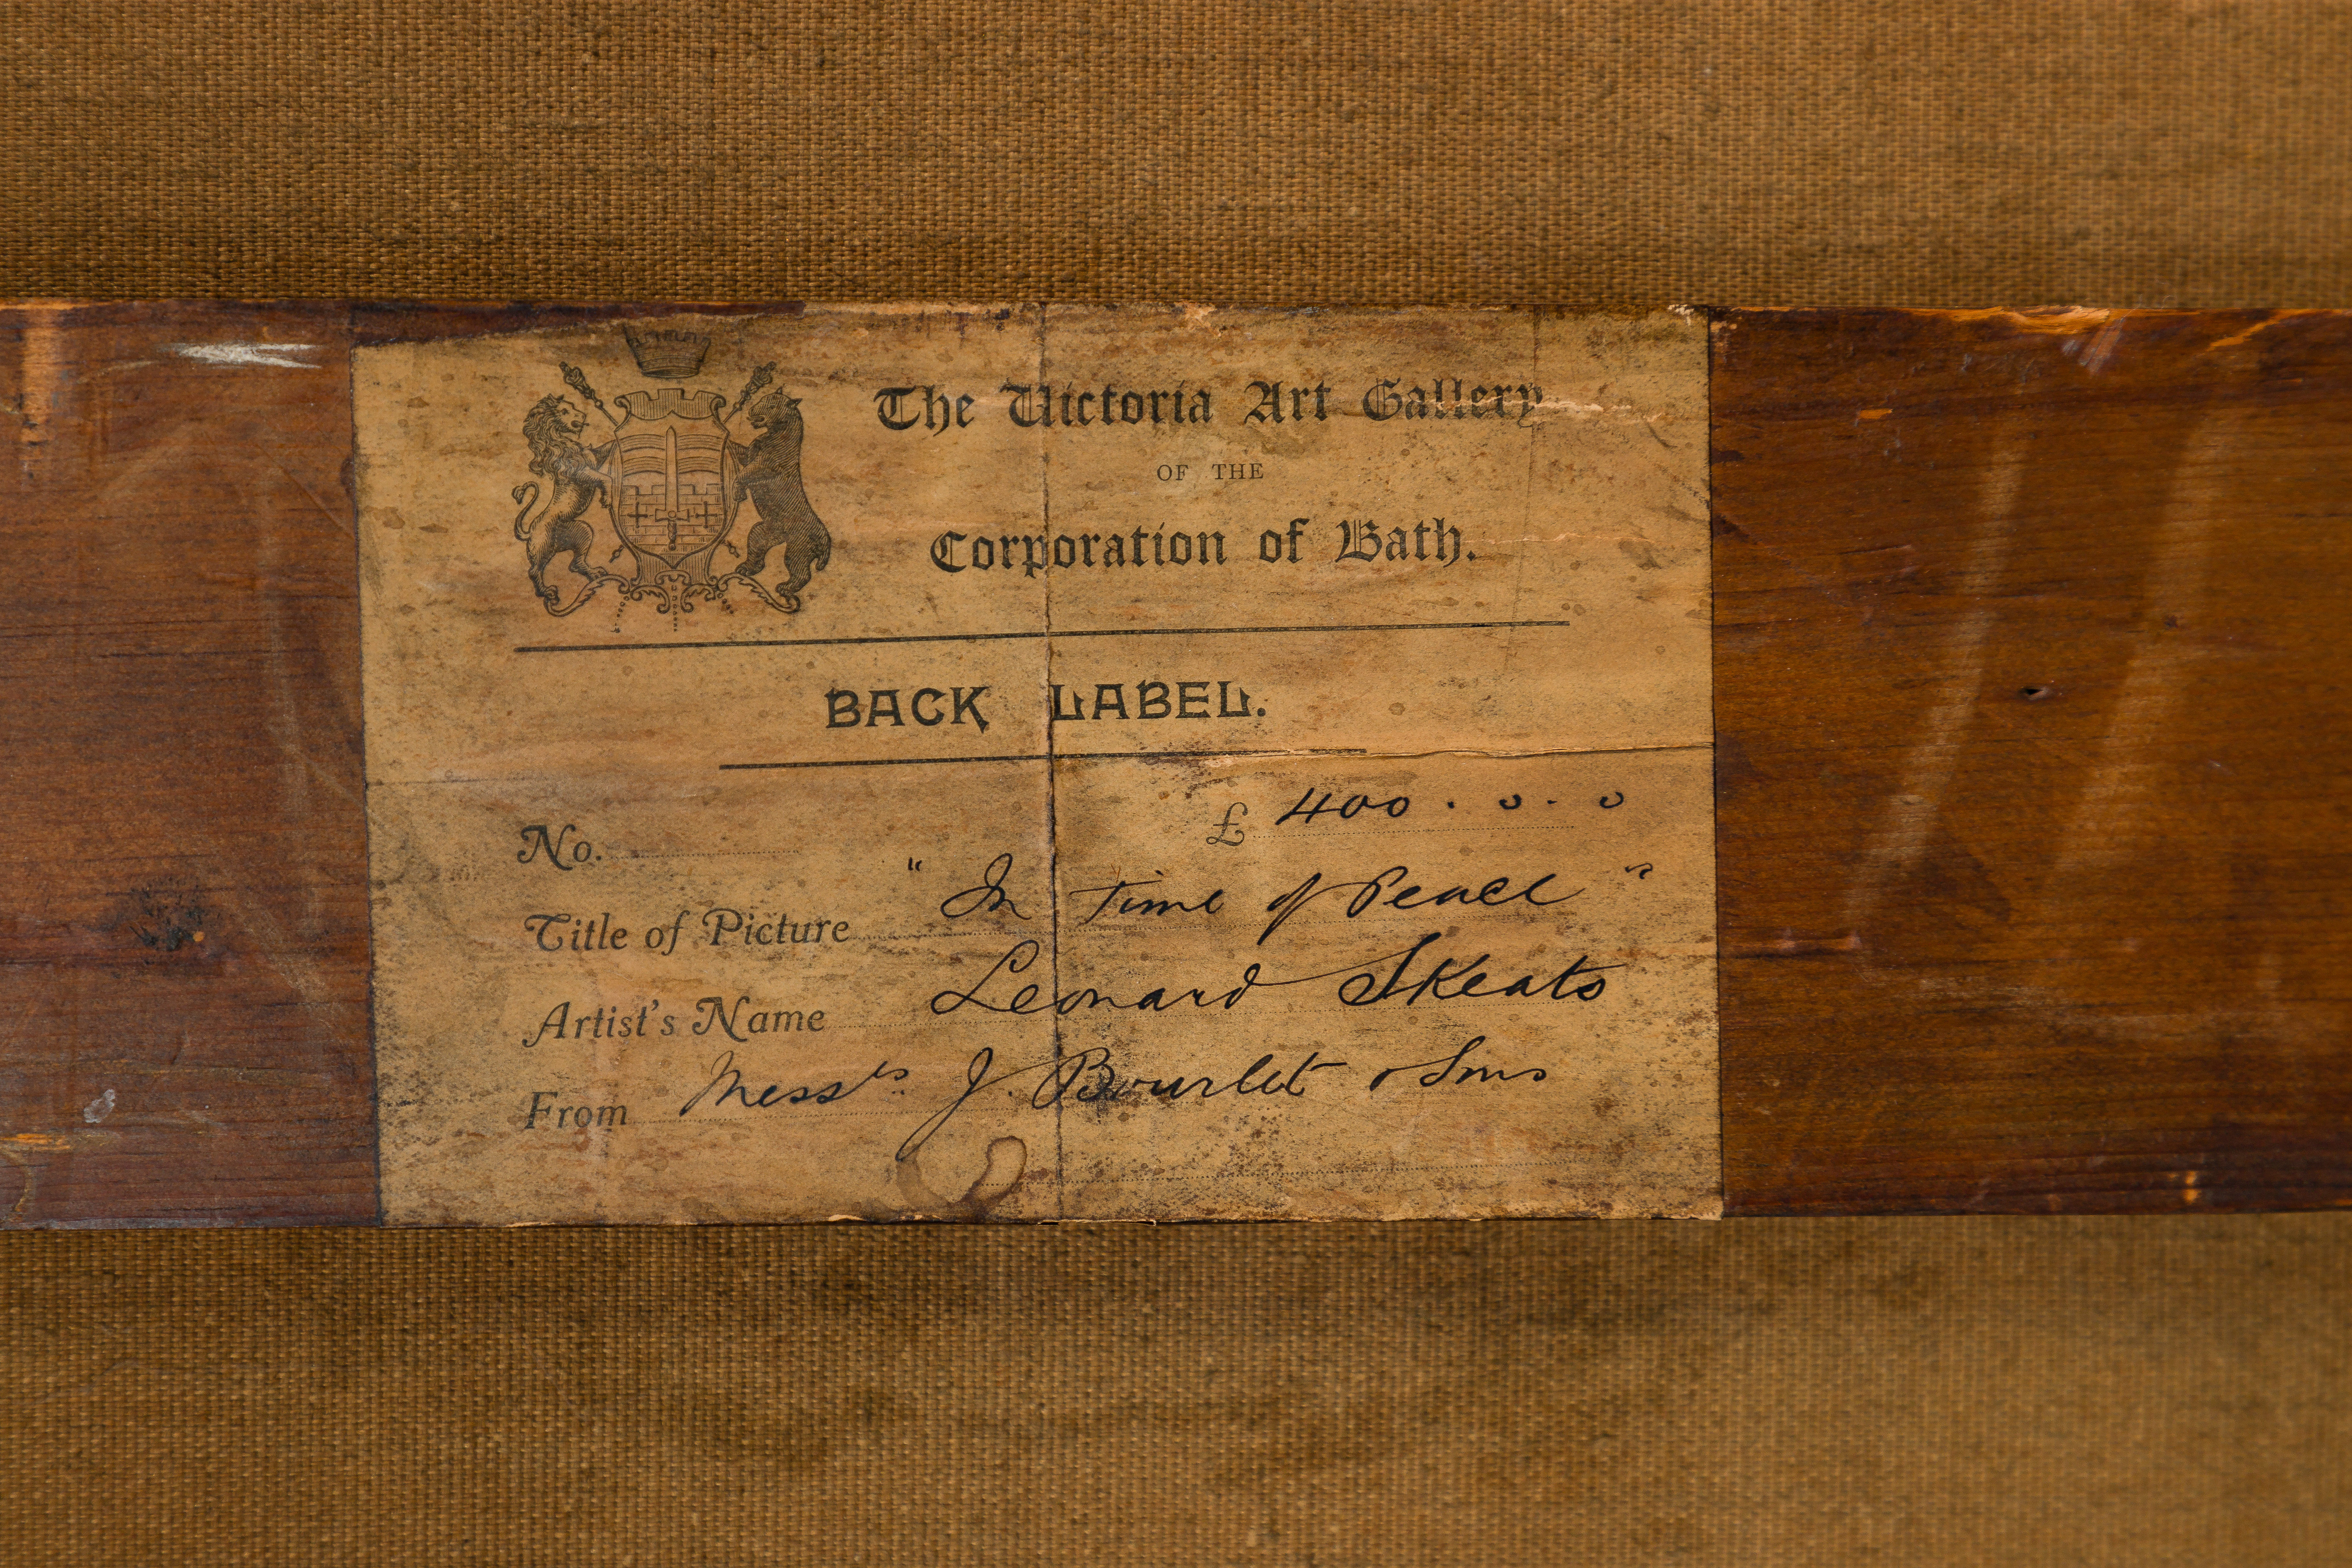 The Victoria Art Gallery
OF THE
Corporation of Bath.
BACK LABEL.
No. £ 400 . 0 . 0
Title of Picture " In Time of Peace "
Artist's Name Leonard Skeats
From Messrs. J. Bourlet & Sons